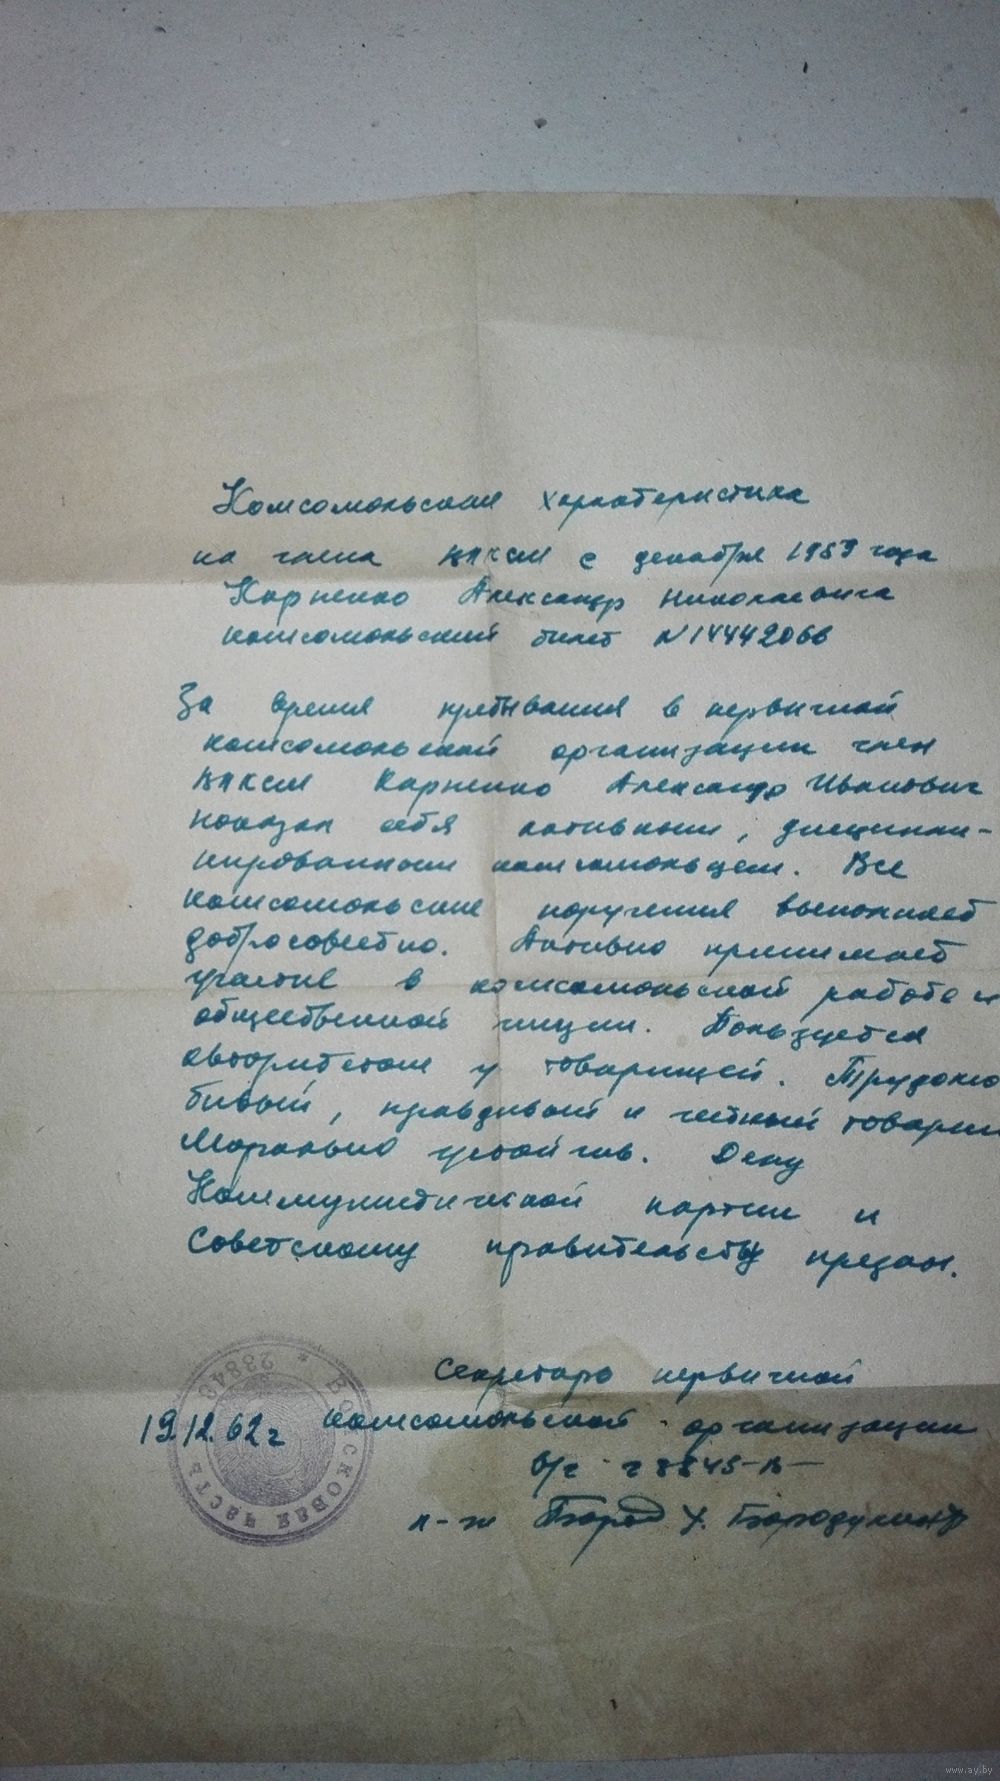 Комсомольская характеристика
на члена ВЛКСМ с декабря 1959 года
Карпенко Александр Николаевича
комсомольский билет N14442066
За время пребывания в первичной
комсомольской организации член
ВЛКСМ Карпенко Александр Иванович
показал себя активным, дисципли-
нированным комсомольцем. Все
комсомольские поручения выполняет
добросовестно. Активно принимает
участие в комсомольской работе и
общественной жизни. Пользуется
авторитетом у товарищей. Трудолю
бивый, правдивый и честный товарищ
Морально устойчив. Делу
Коммунистической партии и
Советскому правительству предан.
Секретарь первичной
19.12.62 г комсомольской организации
в/ч
Бородулин
* ВОЙСКОВАЯ ЧАСТЬ
www.ay.by